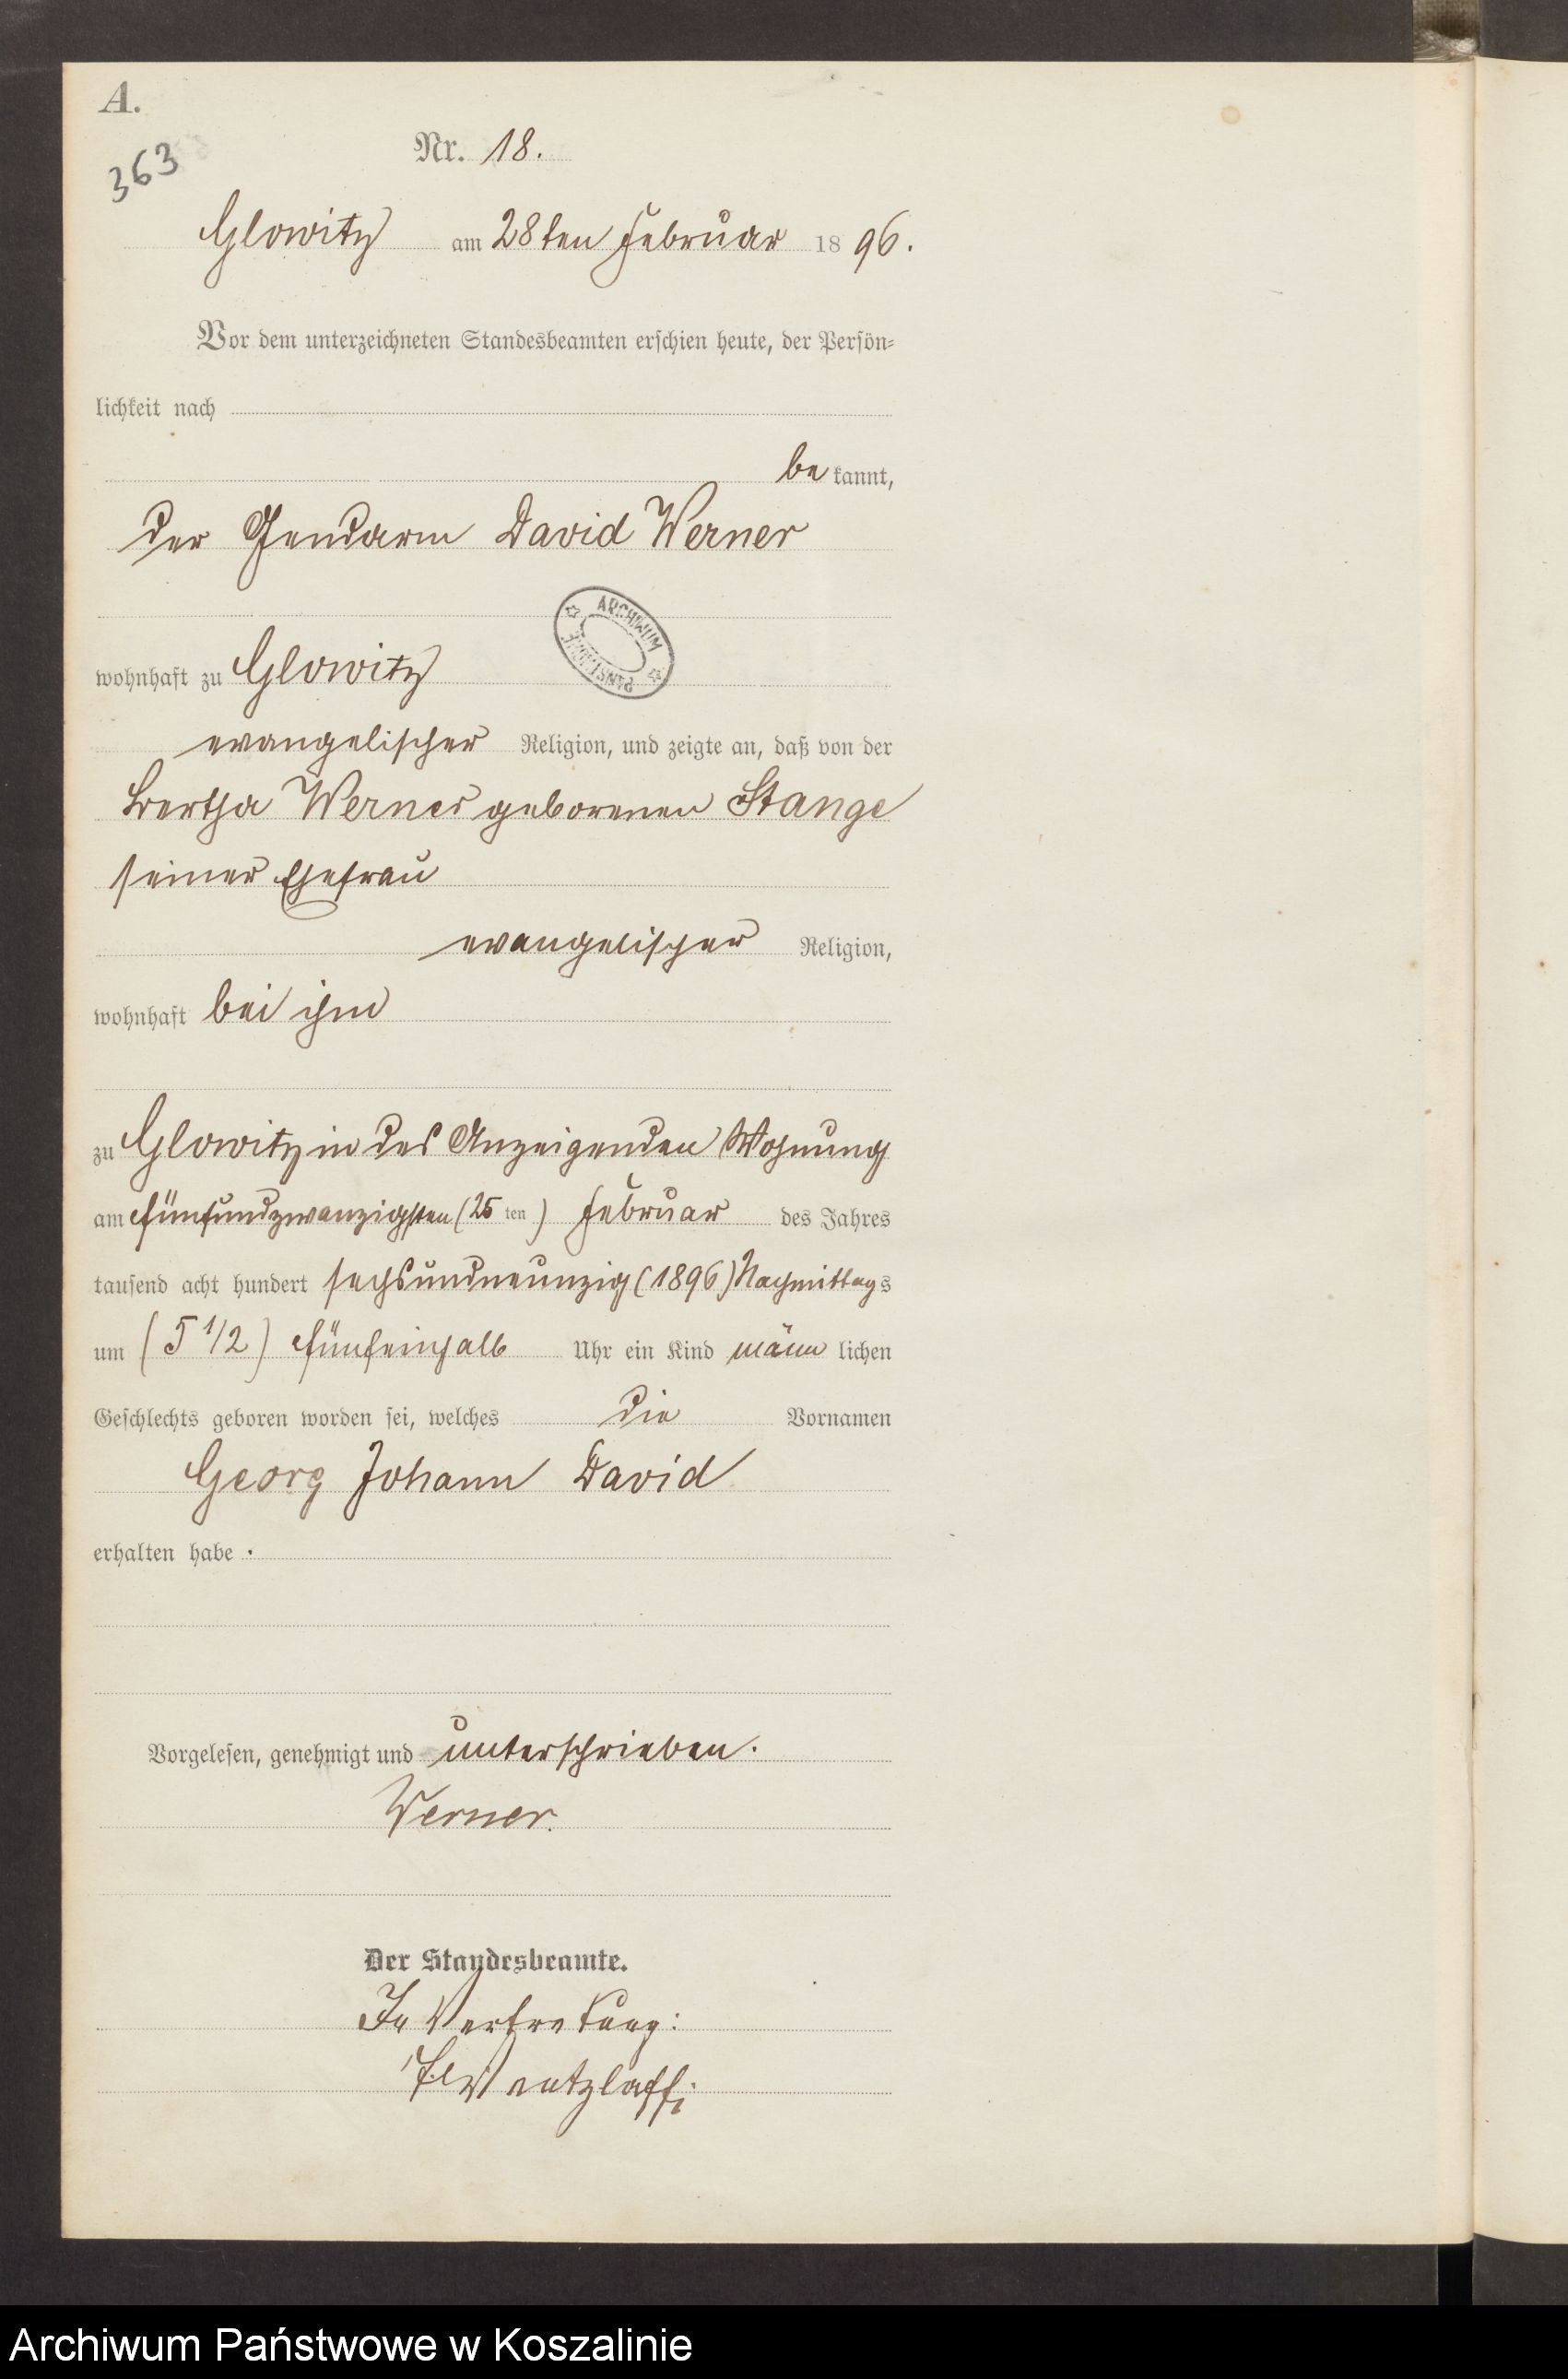 A.
363
Nr. 18.
Glowitz am 28ten Februar 1896.
Vor dem unterzeichneten Standesbeamten erschien heute, der Persön-
lichkeit nach
be kannt,
der Gendarm David Werner
ARCHIWUM PAŃSTWOWE
wohnhaft zu Glowitz
evangelischer Religion, und zeigte an, daß von der
Bertha Werner geborenen Stange
seiner Ehefrau
evangelischer Religion,
wohnhaft bei ihm
zu Glowitz in des Anzeigenden Wohnung
am fünfundzwanzigsten (25 ten) Februar des Jahres
tausend acht hundert sechsundneunzig (1896) Nachmittags
um (5 1/2) fünfeinhalb Uhr ein Kind männ lichen
Geschlechts geboren worden sei, welches die Vornamen
Georg Johann David
erhalten habe.
Vorgelesen, genehmigt und unterschrieben.
Werner.
Der Standesbeamte.
In Vertretung:
Wentzlaff
Archiwum Państwowe w Koszalinie